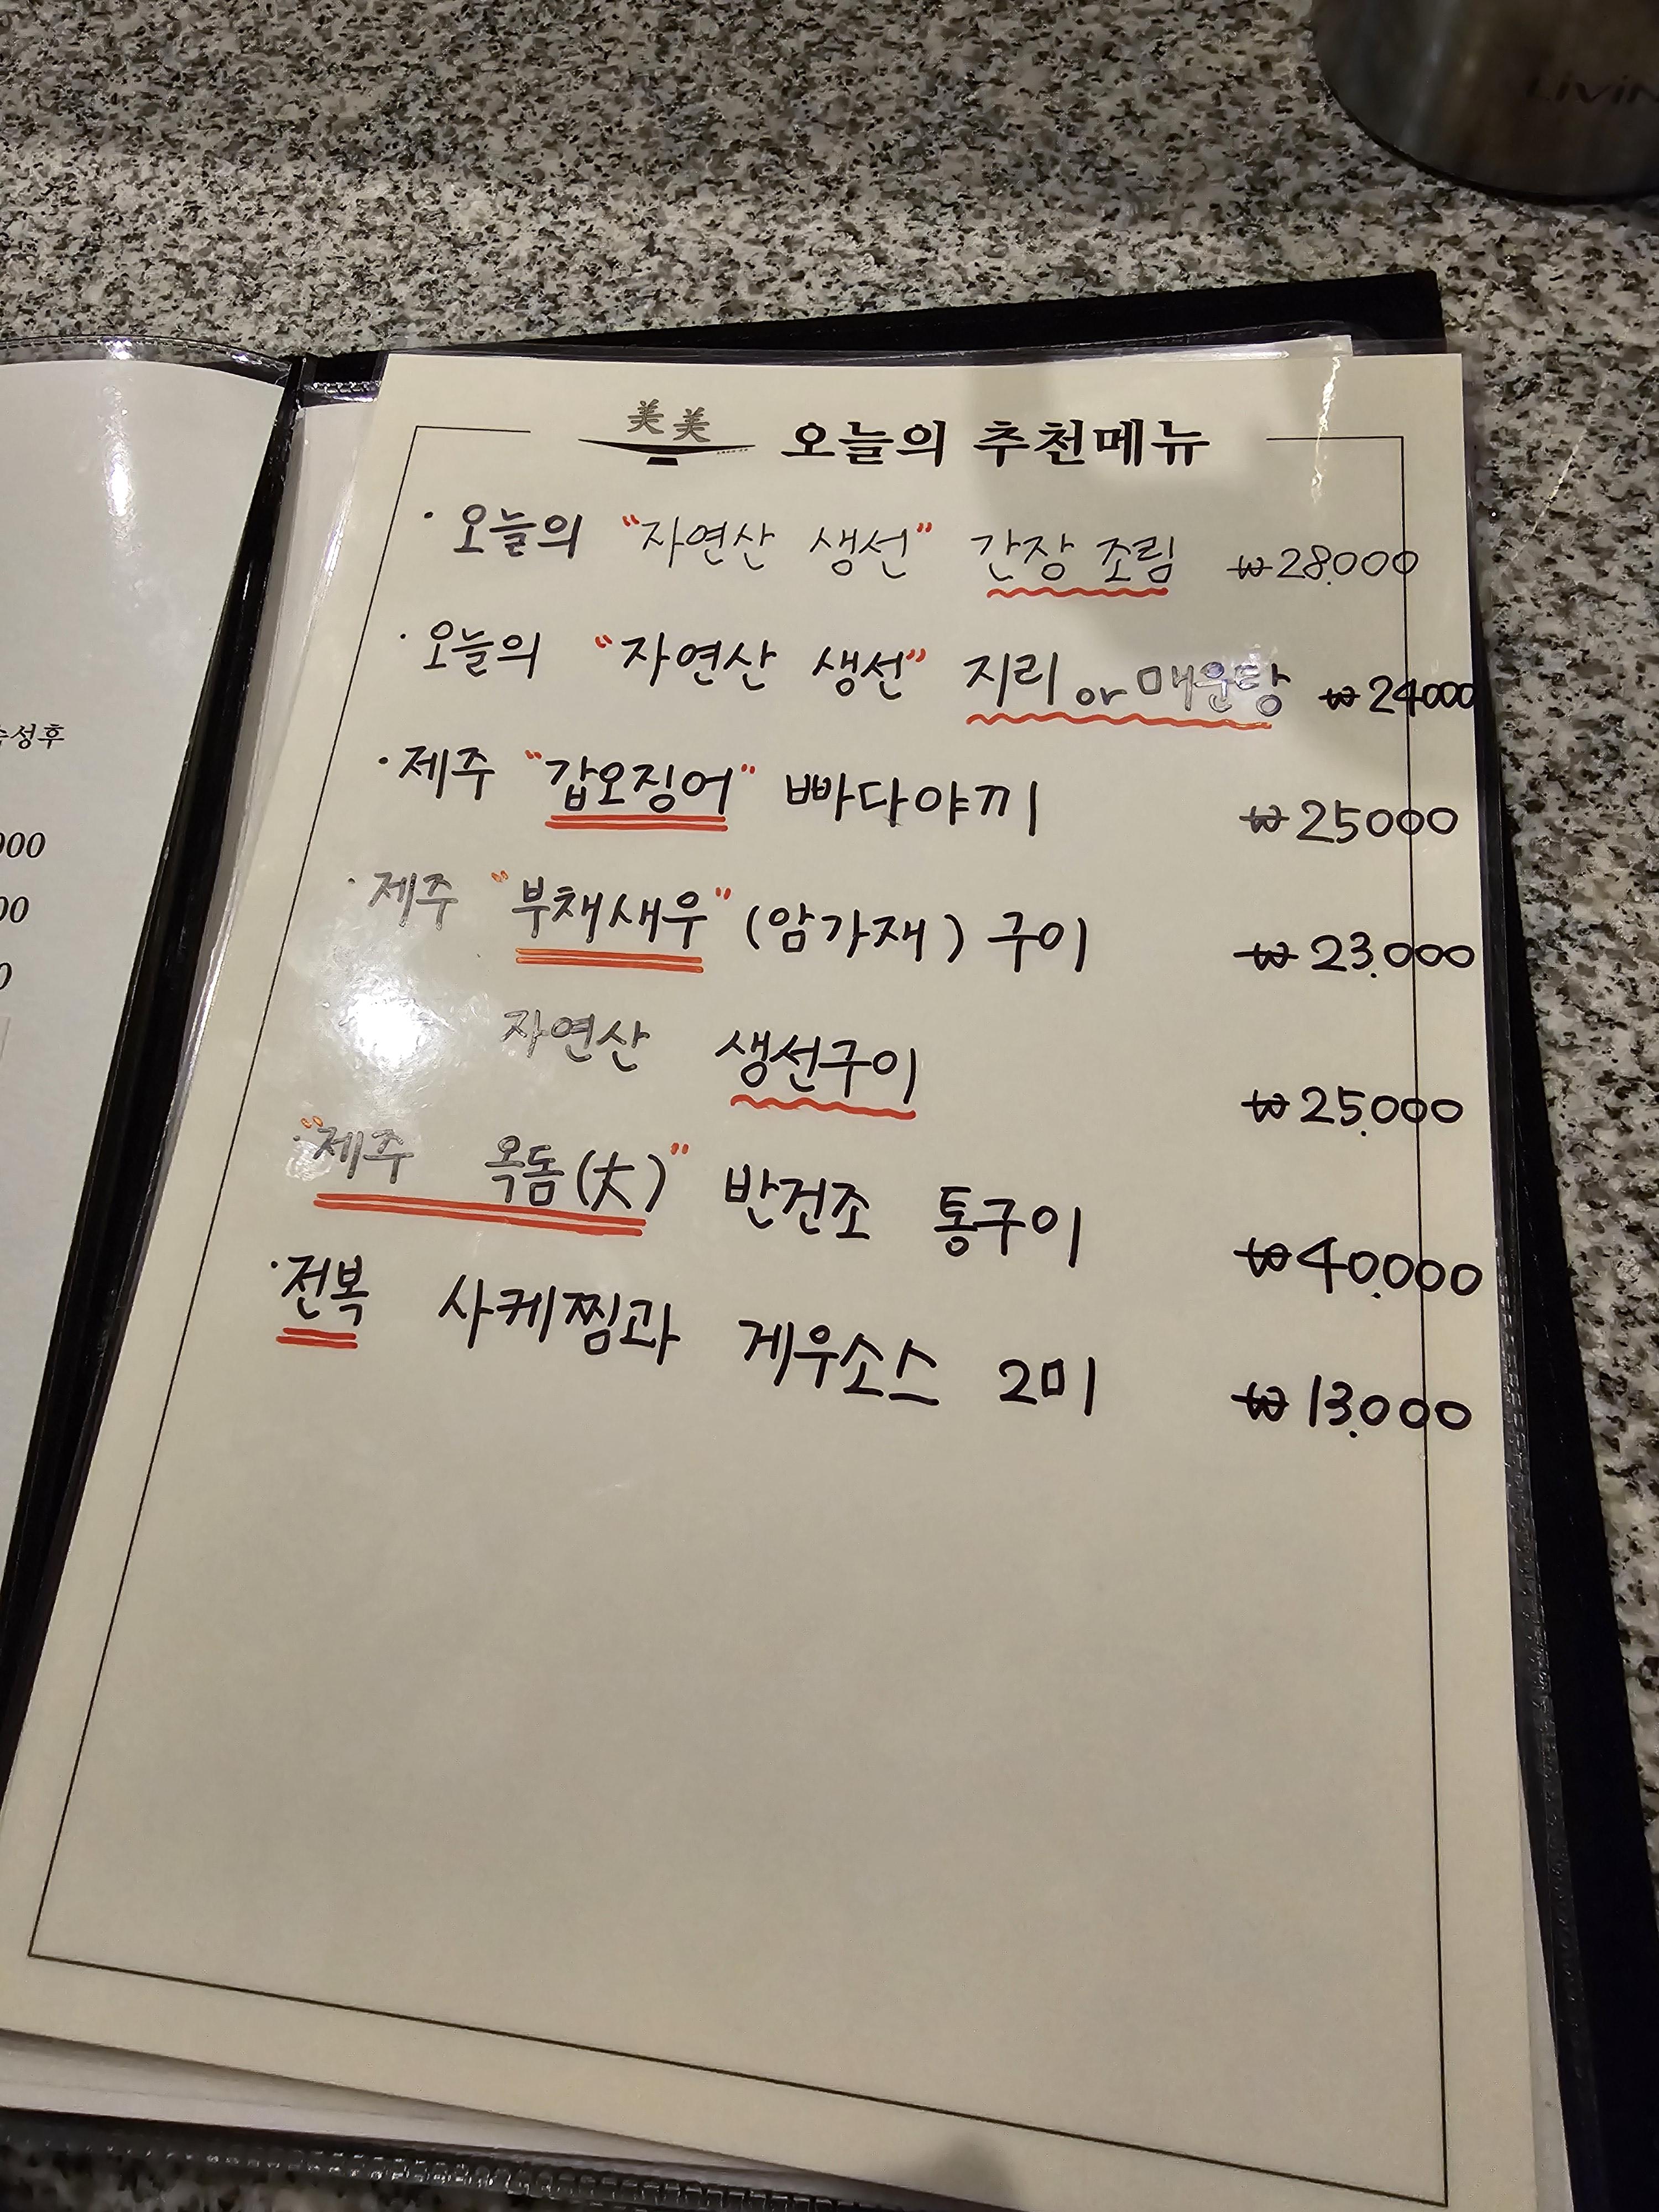 LiViN
美美 오늘의 추천메뉴
· 오늘의 "자연산 생선" 간장 조림 ₩28,000
· 오늘의 "자연산 생선" 지리 or 매운탕 ₩24000
· 제주 "갑오징어" 빠다야끼 ₩25000
· 제주 "부채새우" (암가재) 구이 ₩23,000
자연산 생선구이 ₩25,000
· "제주 옥돔(大)" 반건조 통구이 ₩40,000
· 전복 사케찜과 게우소스 2미 ₩13,000
숙성후
000
00
0